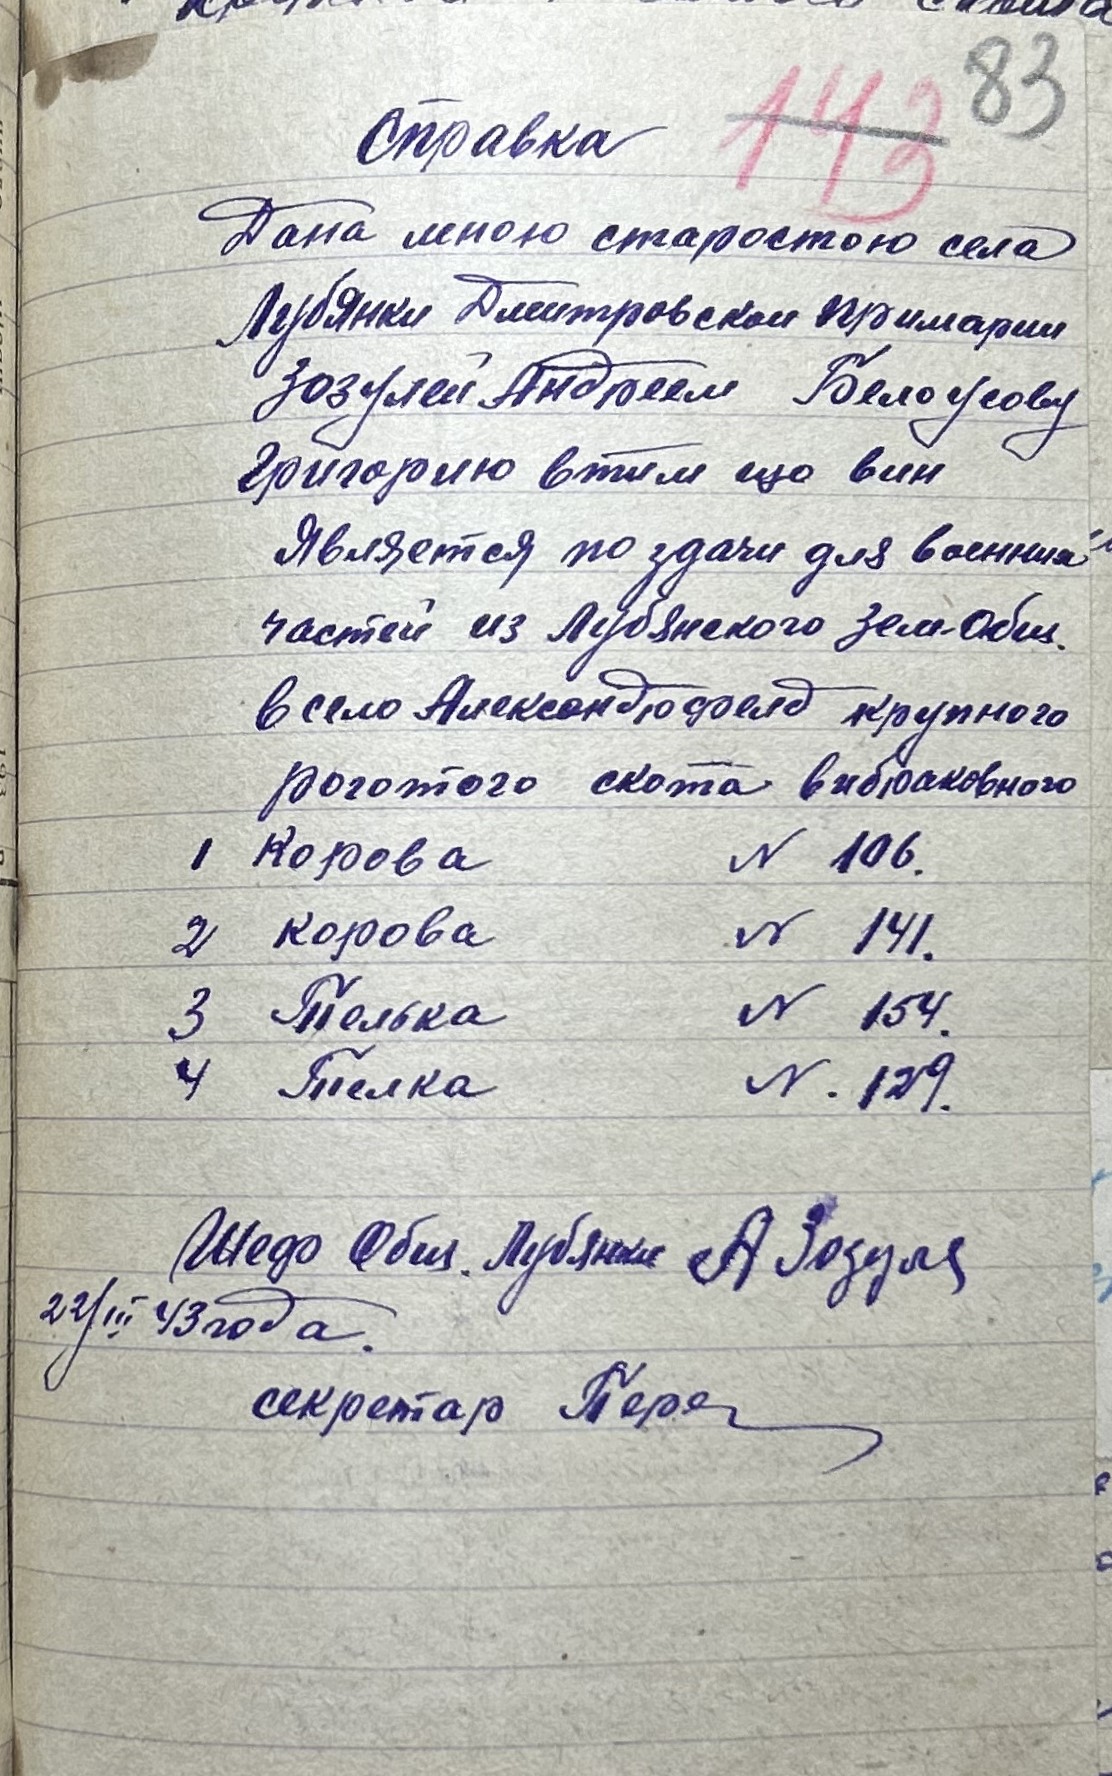 83
143
Справка
Дана мною старостою села
Лубянки Дмитровской примарии
Зозулей Андреем Белоусову
Григорию в тим що вин
Является по здачи для военних
частей из Лубянского Зем-Общ.
в село Александрофелд крупного
рогатого скота вибраковного
1 Корова N 106.
2 Корова N 141.
3 Телька N 154.
4 Телка N. 129.
Шеф Общ. Лубянки А Зозуля
22/III 43 года.
секретар